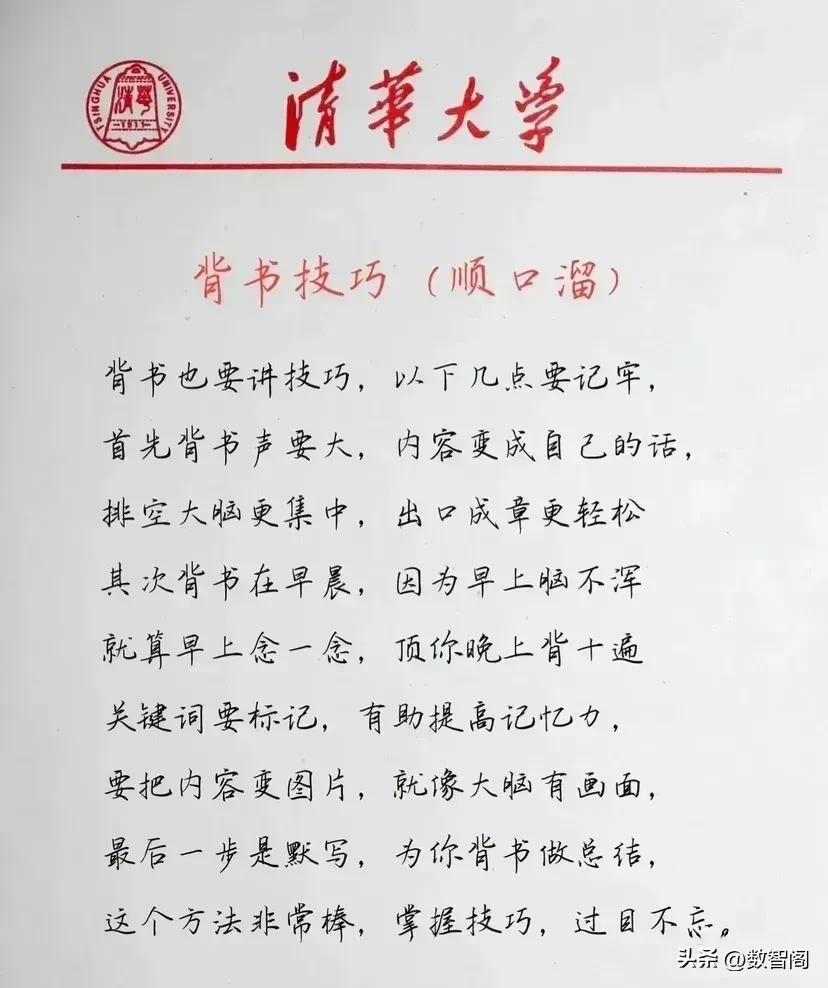 TSINGHUA UNIVERSITY
清華
1911
清華大学
背书技巧（顺口溜）
背书也要讲技巧，以下几点要记牢，
首先背书声要大，内容变成自己的话，
排空大脑更集中，出口成章更轻松
其次背书在早晨，因为早上脑不浑
就算早上念一念，顶你晚上背十遍
关键词要标记，有助提高记忆力，
要把内容变图片，就像大脑有画面，
最后一步是默写，为你背书做总结，
这个方法非常棒，掌握技巧，过目不忘。
头条 @数智阁